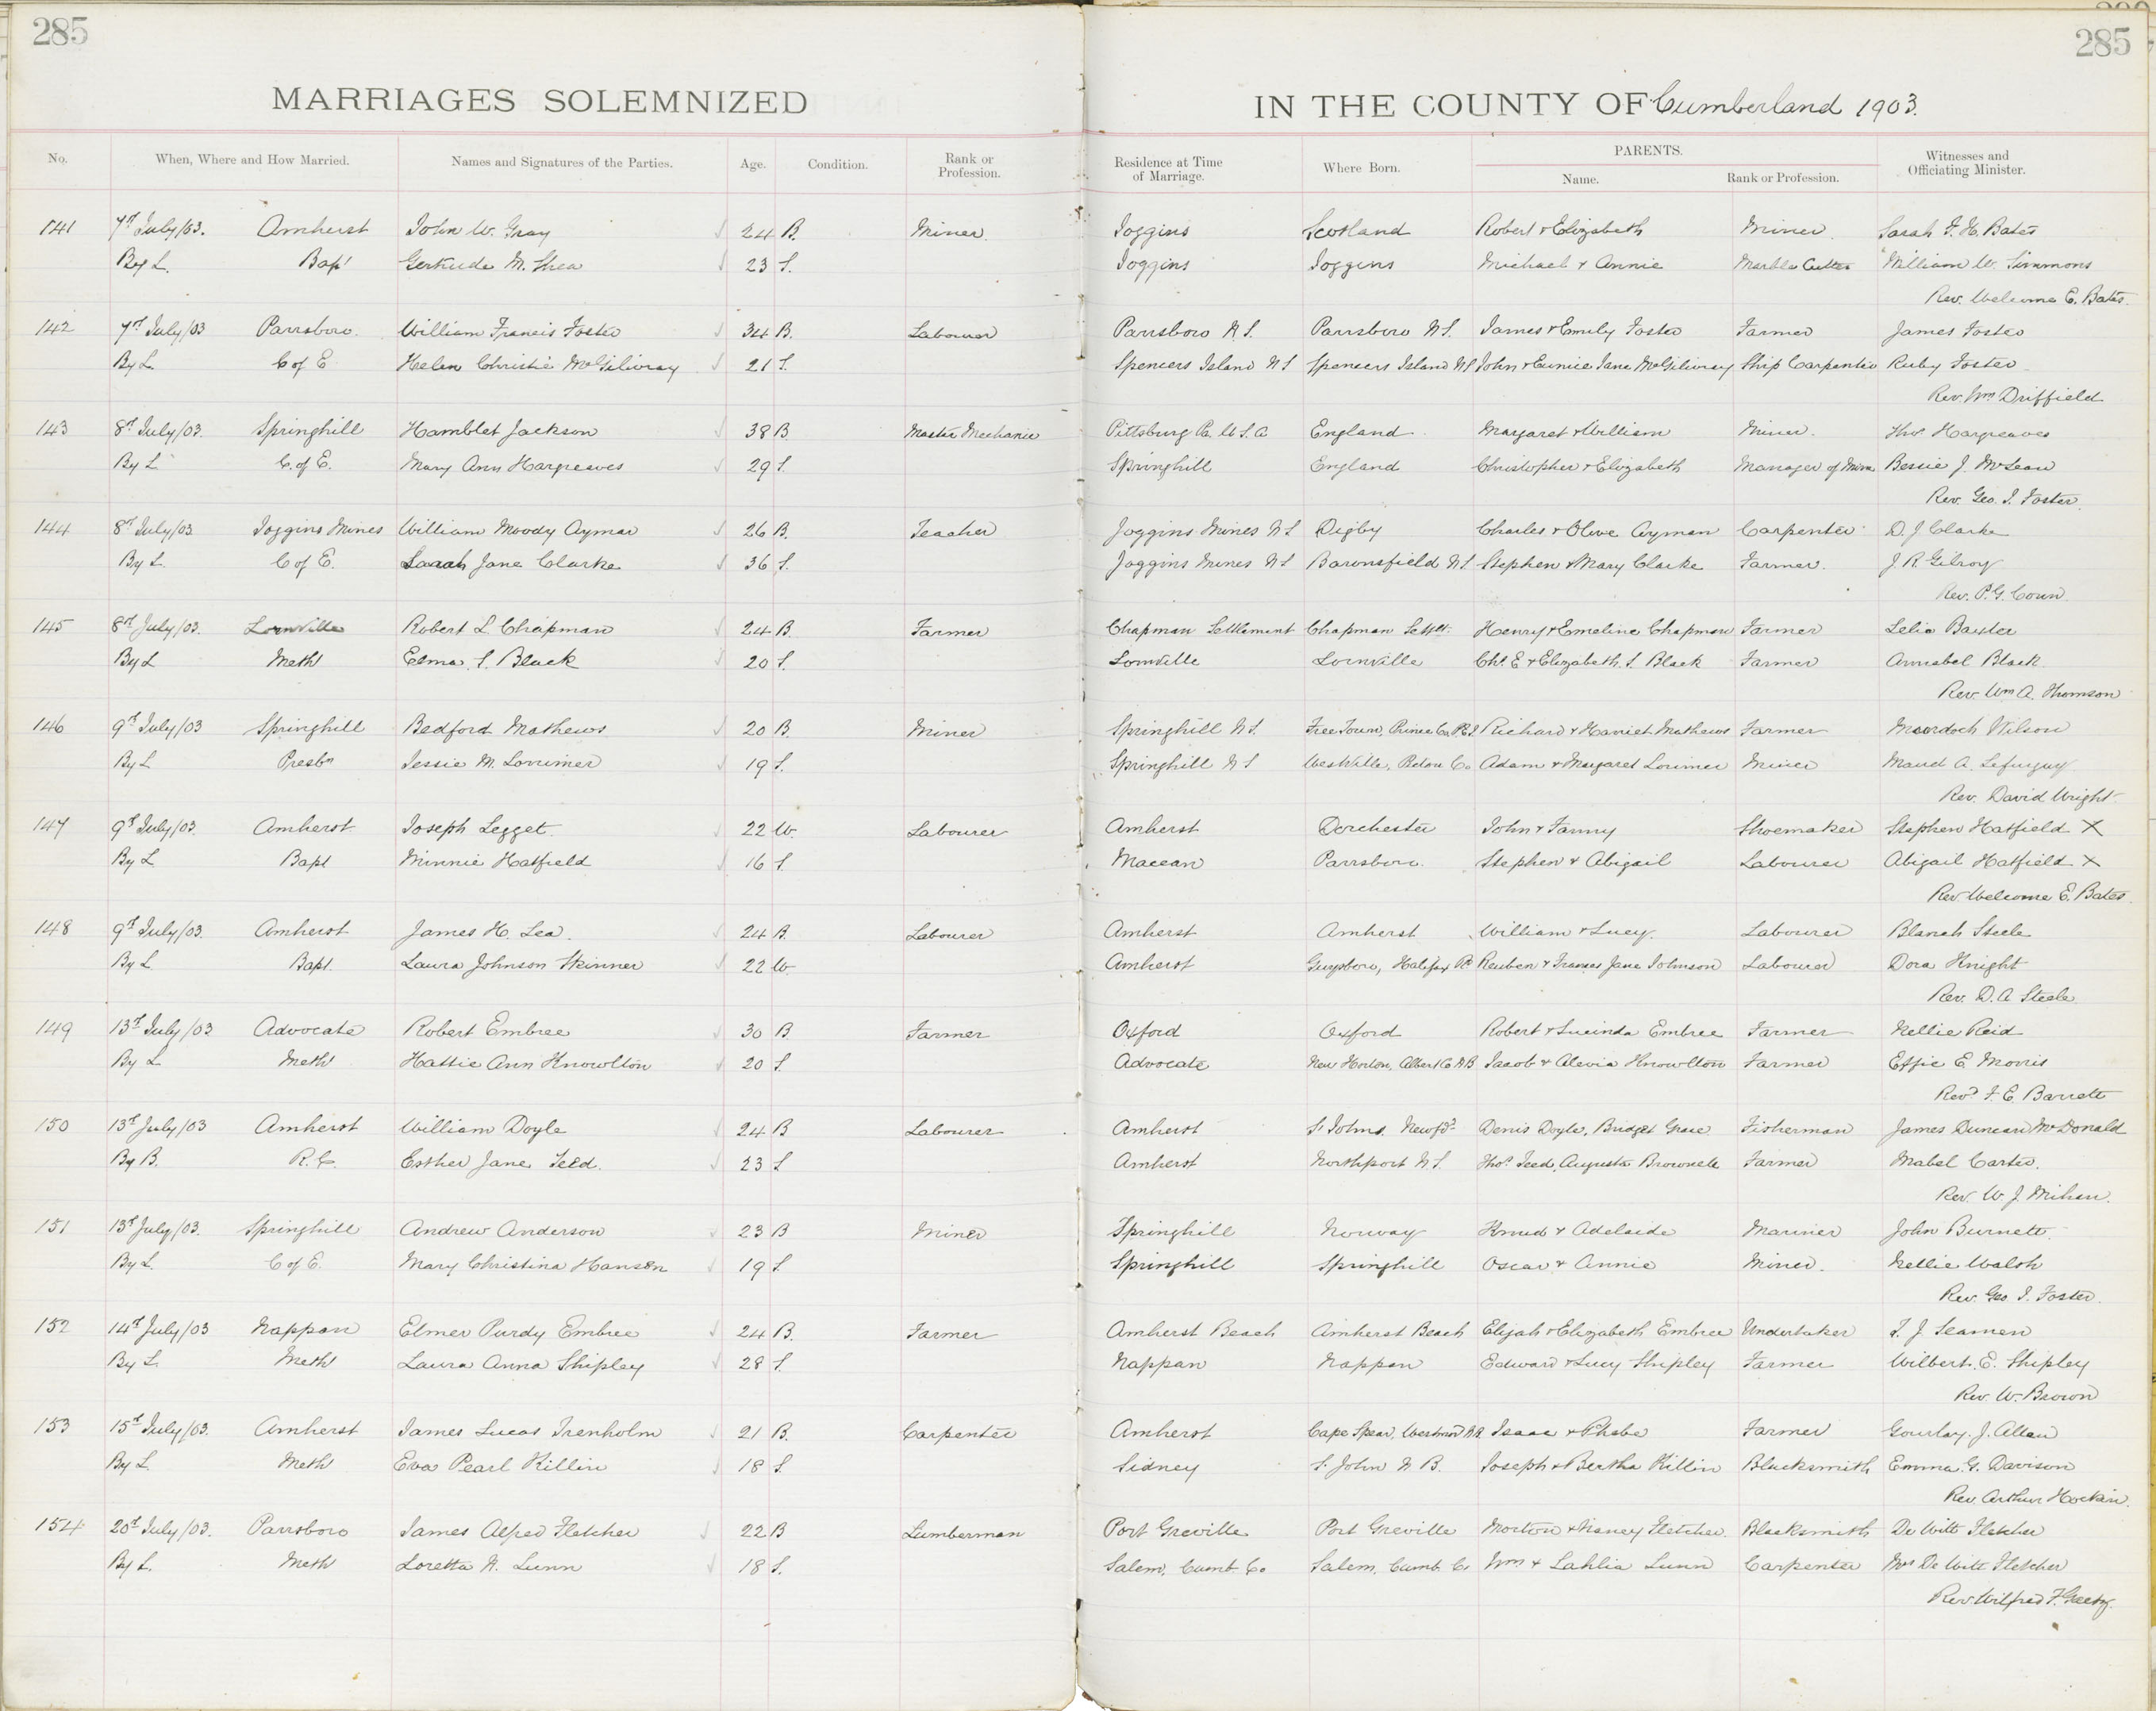 285 285
MARRIAGES SOLEMNIZED IN THE COUNTY OF Cumberland 1903.
No. When, Where and How Married. Names and Signatures of the Parties. Age. Condition. Rank or Profession. Residence at Time of Marriage. Where Born. PARENTS. Name. Rank or Profession. Witnesses and Officiating Minister.
141 7th July/03. Amherst John W. Gray 24 B. Miner. Joggins Scotland Robert & Elizabeth Miner. Sarah F. H. Bates
By L. Bapt Gertrude M. Shea 23 S. Joggins Joggins Michael & Annie Marble Cutter William W. Simmons
Rev. Welcome E. Bates.
142 7th July/03 Parrsboro. William Francis Foster 34 B. Labourer Parrsboro N.S. Parrsboro N.S. James & Emily Foster Farmer James Foster
By L. C of E Helen Christie McGilivray 21 S. Spencers Island N S Spencers Island N S John & Eunice Jane McGilivray Ship Carpenter Ruby Foster
Rev. Wm Driffield
143 8th July/03. Springhill Hamblet Jackson 38 B. Master Mechanic Pittsburg Pa. U.S.A England Margaret & William Miner. Thos Hargreaves
By L C. of E. Mary Ann Hargreaves 29 S. Springhill England Christopher & Elizabeth Manager of Mine Bessie J. McLean
Rev. Geo. I. Foster.
144 8th July/03 Joggins Mines William Moody Aymar 26 B. Teacher Joggins Mines N S Digby Charles & Olive Aymar Carpenter D. J Clarke
By L. C of E. Sarah Jane Clarke 36 S. Joggins Mines N S Baronsfield N.S. Stephen & Mary Clarke Farmer. J. R. Gilroy
Rev. P. G. Corun
145 8th July/03. Lornville Robert L Chapman 24 B. Farmer Chapman Settlement Chapman Settt. Henry & Emeline Chapman Farmer Lelia Baxter
By L Meth Elma. S. Black 20 S. Lornville Lornville Chs. E & Elizabeth. S. Black Farmer Annabel Black
Rev. Wm A. Thomson
146 9th July/03 Springhill Bedford Mathews 20 B. Miner Springhill N.S. Free Town, Prince Co. P.E.I Richard & Harriet Mathews Farmer Moordoch Wilson
By L Presbn Jessie M. Lorrimer 19 S. Springhill N S Westville, Pictou Co Adam & Margaret Lorimer Miner Maud A. Lefurguy
Rev. David Wright.
147 9th July/03. Amherst Joseph Legget 22 W. Labourer Amherst Dorchester John & Fanny Shoemaker Stephen Hatfield X
By L Bapt Minnie Hatfield 16 S. Maccan Parrsboro. Stephen & Abigail Labourer Abigail Hatfield X
Rev Welcome E. Bates.
148 9th July/03. Amherst James H. Lea. 24 B. Labourer Amherst Amherst William & Lucy. Labourer Blanch Steele
By L Bapt. Laura Johnson Skinner 22 W. Amherst Guysboro, Halifax Co Reuben & Frances Jane Johnson Labourer Dora Knight
Rev. D. A Steele
149 13th July/03 Advocate Robert Embree 30 B. Farmer Oxford Oxford Robert & Lucinda Embree Farmer Nellie Reid
By L Meth Hattie Ann Knowlton 20 S. Advocate New Horton, Albert Co N B Jacob & Alevia Knowlton Farmer Effie E Morris
Revd F. E. Barrett
150 13th July/03 Amherst William Doyle 24 B Labourer Amherst St Johns. Newfd. Denis Doyle, Bridget Grace Fisherman James Duncan McDonald
By B. R. C. Esther Jane Teed. 23 S Amherst Northport N S. Thos. Teed, Augusta Brownell Farmer Mabel Carter.
Rev. W. J. Mihan.
151 13th July/03. Springhill Andrew Anderson 23 B Miner Springhill Norway Knud & Adelaide Mariner John Burnett.
By L. C of E. Mary Christina Hansen 19 S. Springhill Springhill Oscar & Annie Miner. Nellie Walsh
Rev. Geo. I. Foster.
152 14th July/03 Nappan Elmer Purdy Embree 24 B. Farmer Amherst Beach Amherst Beach Elijah & Elizabeth Embree Undertaker F. J Seamen
By L. Meth Laura Anna Shipley 28 S. Nappan Nappan Edward & Lucy Shipley Farmer Wilbert. E. Shipley
Rev. W. Brown
153 15th July/03. Amherst James Lucas Trenholm 21 B. Carpenter Amherst Cape Spear, Westmd N B. Isaac & Phebe Farmer Gourlay. J. Allan
By L. Meth Eva Pearl Killin 18 S. Sidney St. John N. B. Joseph & Bertha Killin Blacksmith Emma. G. Davison
Rev. Arthur Hockin.
154 20th July/03. Parrsboro James Alfred Fletcher 22 B Lumberman Port Greville Port Greville Morton & Nancy Fletcher. Blacksmith De Witt Fletcher
By L. Meth Loretta N. Lunn 18 S. Salem, Cumb. Co Salem, Cumb. Co Wm & Lahlia Lunn Carpenter Mrs De Witt Fletcher
Rev. Wilfred F. Gaetz.